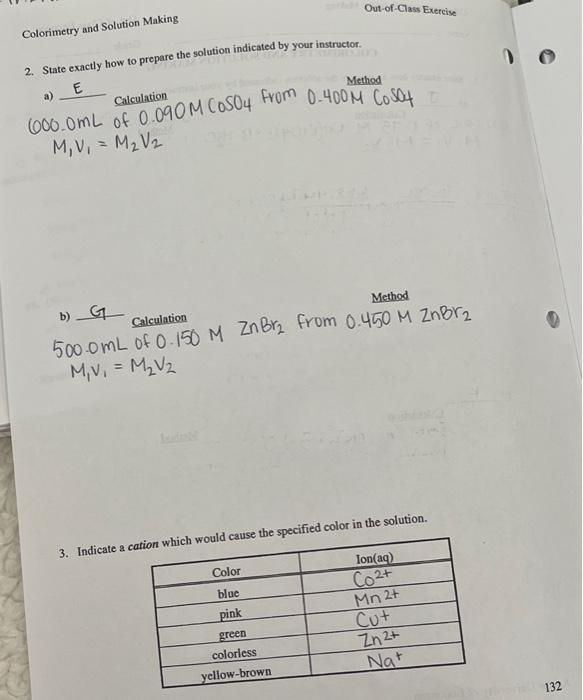 Out-of-Class Exercise
Colorimetry and Solution Making
2. State exactly how to prepare the solution indicated by your instructor.
a) E
Calculation
Method
1000.0mL of 0.090M CoSO4 from 0.400M CoSO4
M1V1 = M2V2
b) G
Calculation
Method
500.0mL of 0.150 M ZnBr2 from 0.450 M ZnBr2
M1V1 = M2V2
3. Indicate a cation which would cause the specified color in the solution.
Color Ion(aq)
blue Co2+
pink Mn2+
green Cu+
colorless Zn2+
yellow-brown Na+
132